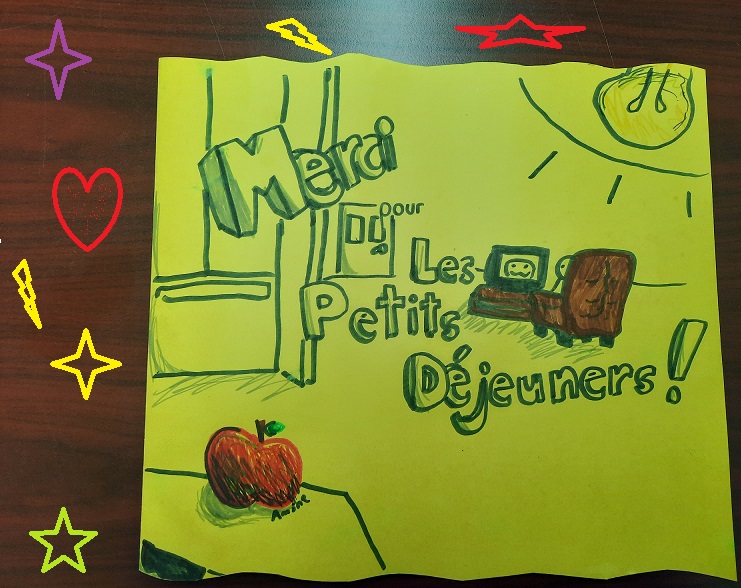 Merci
pour
Les
Petits
Déjeuners!